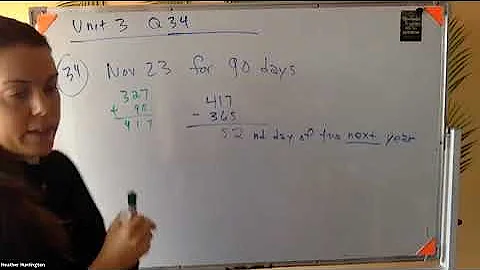 Unit 3 Q 34
34 Nov 23 for 90 days
327
+ 90
417
417
- 365
52 nd day of the next year
Heather Huntington